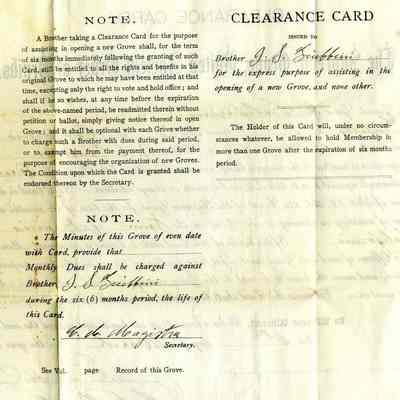 NOTE.
A Brother taking a Clearance Card for the purpose
of assisting in opening a new Grove shall, for the term
of six months immediately following the granting of such
Card, still be entitled to all the rights and benefits in his
original Grove to which he may have been entitled at that
time, excepting only the right to vote and hold office; and
shall if he so wishes, at any time before the expiration
of the above-named period, be readmitted therein without
petition or ballot, simply giving notice thereof in open
Grove; and it shall be optional with each Grove whether
to charge such a Brother with dues during said period,
or to exempt him from the payment thereof, for the
purpose of encouraging the organization of new Groves.
The Condition upon which the Card is granted shall be
endorsed thereon by the Secretary.
NOTE.
The Minutes of this Grove of even date
with Card, provide that
Monthly Dues shall be charged against
Brother J. S.
during the six (6) months period, the life of
this Card.
Secretary.
See Vol. page Record of this Grove.
CLEARANCE CARD
ISSUED TO
Brother J. S.
for the express purpose of assisting in the
opening of a new Grove, and none other.
The Holder of this Card will, under no circum-
stances whatever, be allowed to hold Membership in
more than one Grove after the expiration of six months
period.